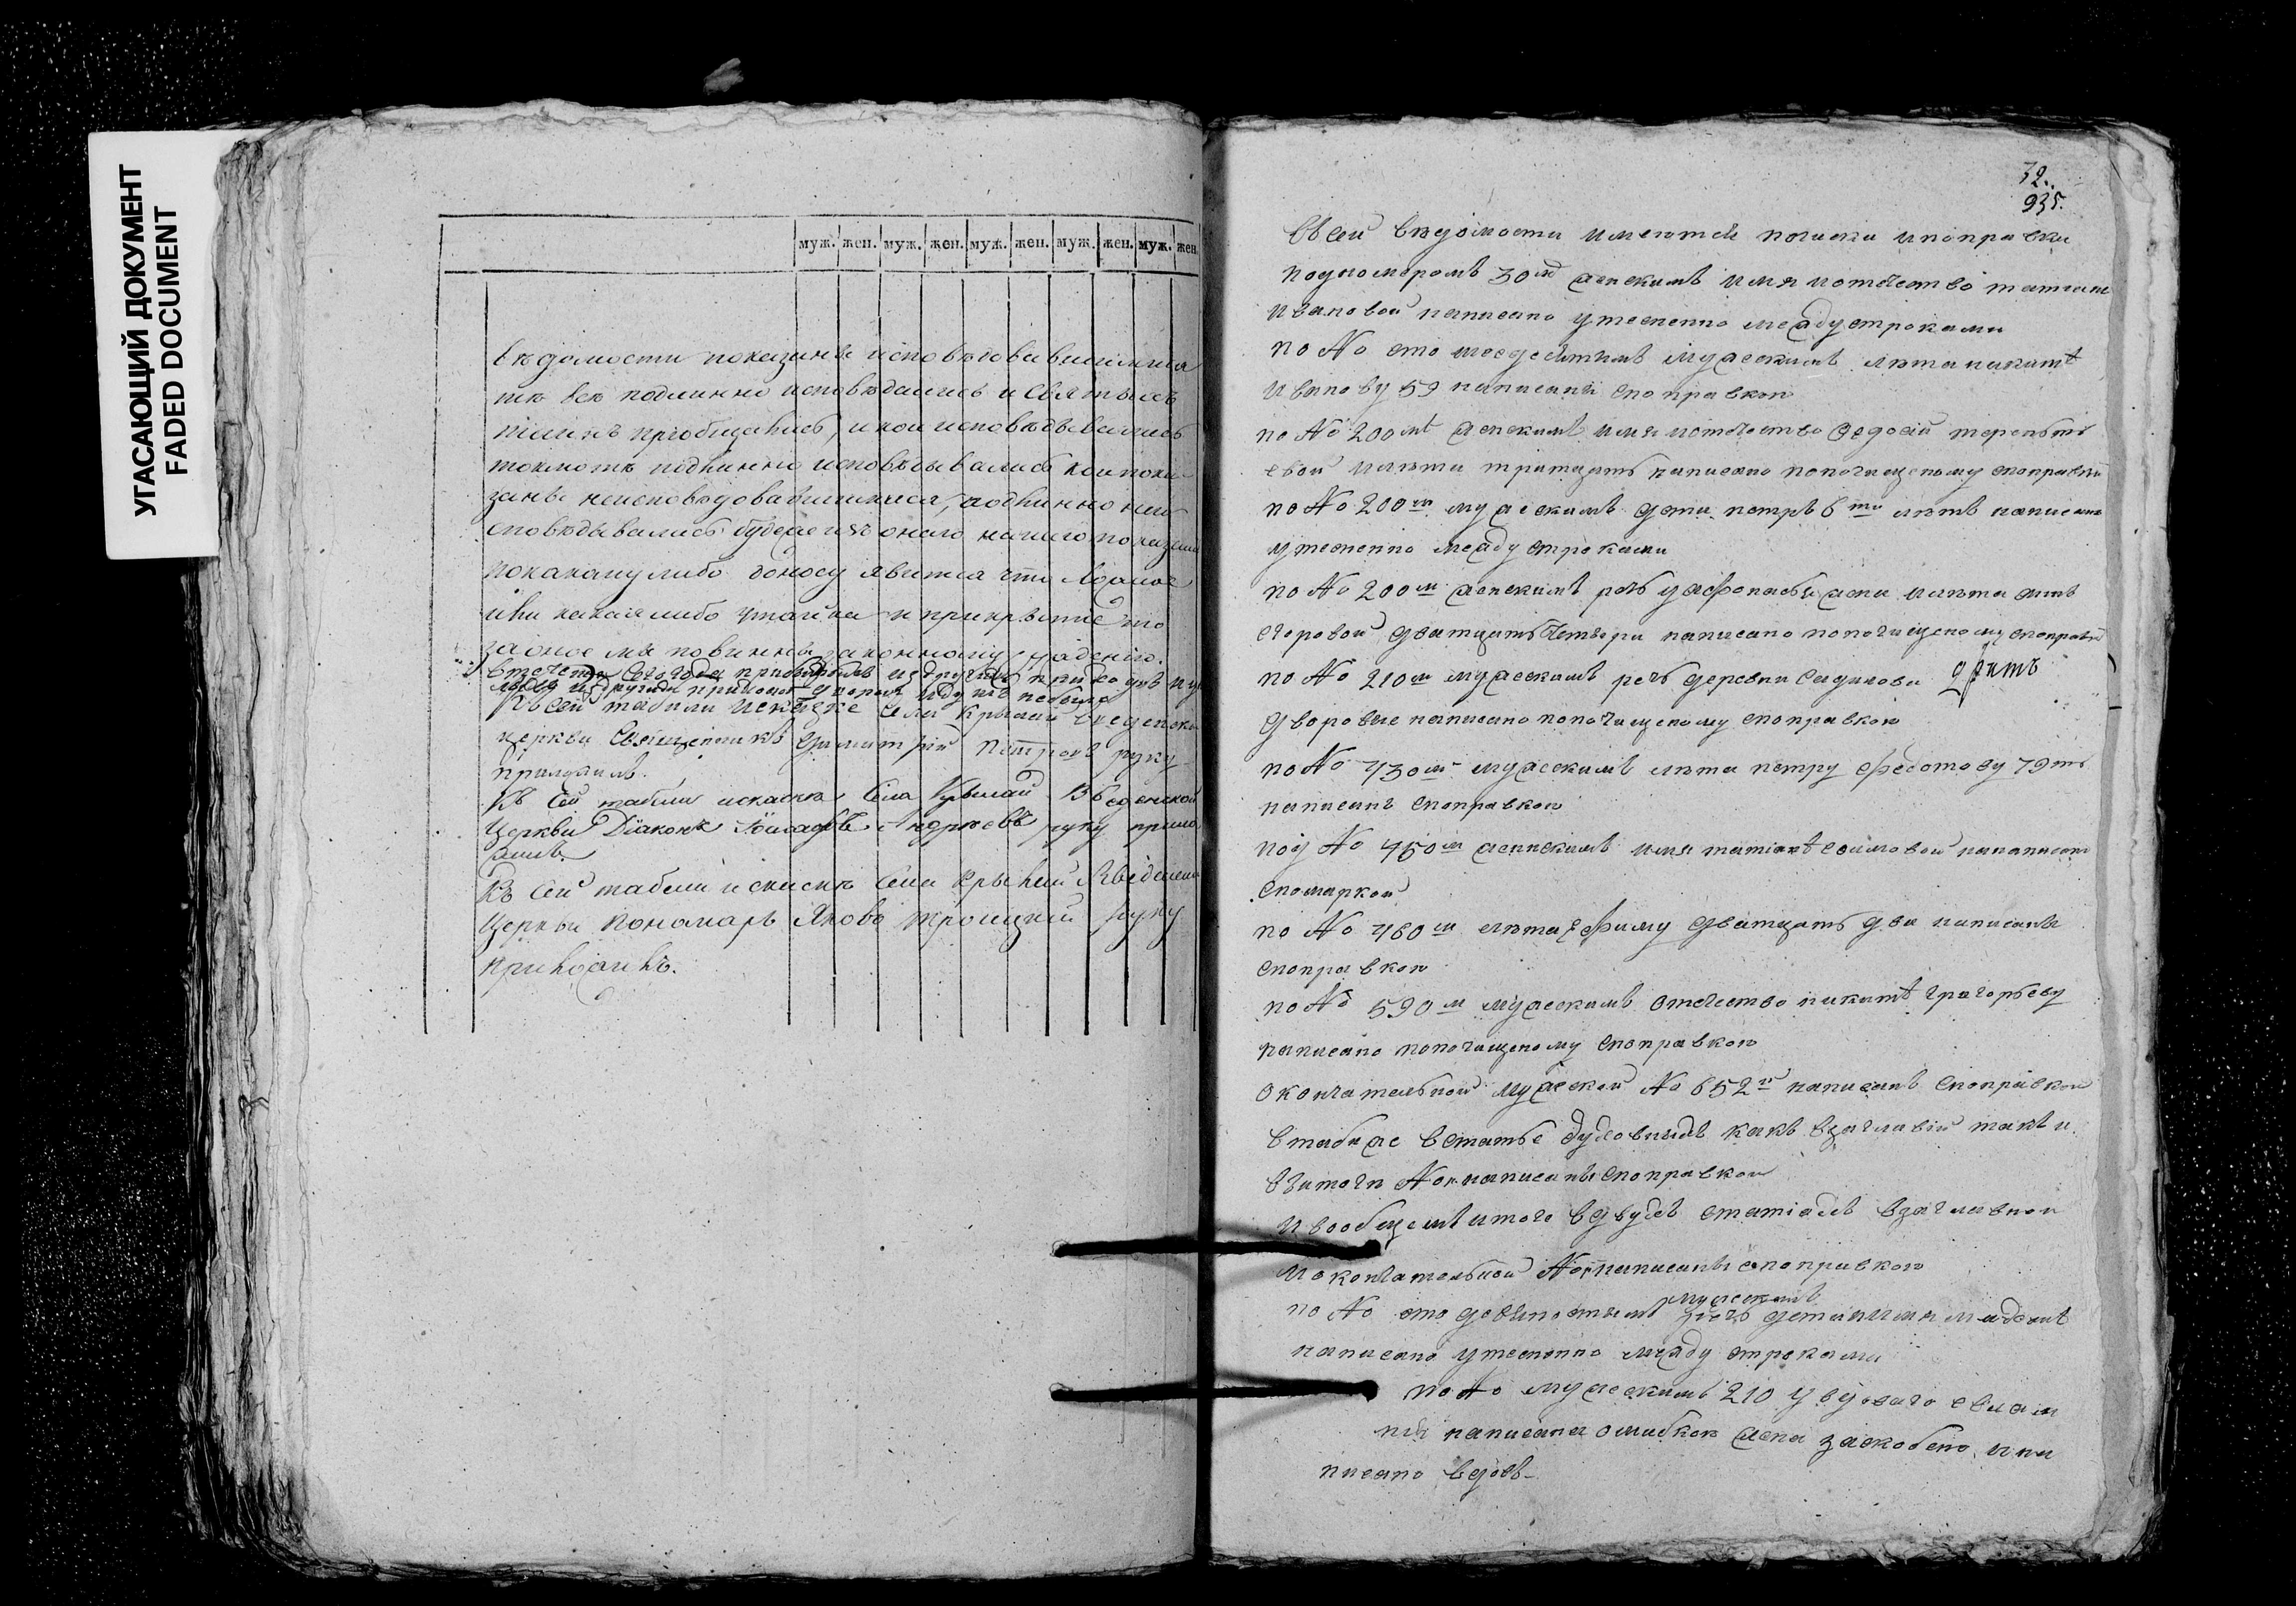 УГАСАЮЩИЙ ДОКУМЕНТ
FADED DOCUMENT
муж. жен. муж. жен. муж. жен. муж. жен. муж. жен.
вѣдомости показаны исповѣдовавшимися
тѣ всѣ подлинно исповѣдались и святыхъ
таинъ приобщались, и кои исповѣдывались
токмо тѣ подлинно исповѣдывались кои пока
заны неисповѣдовавшимися, подлинно неи
сповѣдывались буде же изъ онаго нашего показания
по какому либо доносу явится что ложное
или какая либо утайка и прикрытие то
за оное мы повинны законному суждению.
въ сей табели и скаске села Крылай введенской
церкви Священникъ Димитрий Петровъ руку
приложилъ.
Къ сей табели и скаскѣ села Крылай Введенской
Церкви Диаконъ Андреевъ руку прило
жилъ
Къ сей табели и скаскѣ села Крылай Введенской
Церкви пономарь Яковъ Троицкий руку
приложилъ.
32.
935.
Въ сей вѣдомости имеются почиски и поправки
под номеромъ 30м женскимъ имя и отчество татьяне
Ивановой написано утесненно между строками
по No сто шесдесятымъ мужескимъ лѣта никитѣ
Иванову 59 написаны споправкою
по No 200мъ женскимъ имя и отчество Федосьи терентье
евой и лѣта тритцать написано по почищеному споправкой
по No 200м мужескимъ дети петръ 6ти лѣтъ написано
утесненно между строками
по No 200м женскимъ речь у афонасья жены и лѣта
егоровой дватцать четыри написано по почищеному споправкой
по No 210м мужескимъ речь деревни
дворовые написано по почищеному споправкою
по No 430м мужескимъ лѣта петру федотову 79ть
написанъ споправкою
под No 450м женскимъ имя татианѣ ефимовой написано
спомаркой
по No 480м лѣта Ефиму дватцать два написаны
споправкою
по No 590м мужескимъ отчество никитѣ григорьеву
написано по почищеному споправкою
окончательной мужеской No 652й написанъ споправкою
в табеле в статье духовныхъ какъ в заглавии такъ и
в итоги No написаны споправкою
и вообщемъ итоге в двухъ статияхъ в заглавной
и окончательной No написаны споправкою
мужескимъ
по No сто девяностымъ дети имя
написано утесненно между строками
по No мужескимъ 210 у вдоваго
написана ошибкою жена заскоблено и на
писано вдовъ